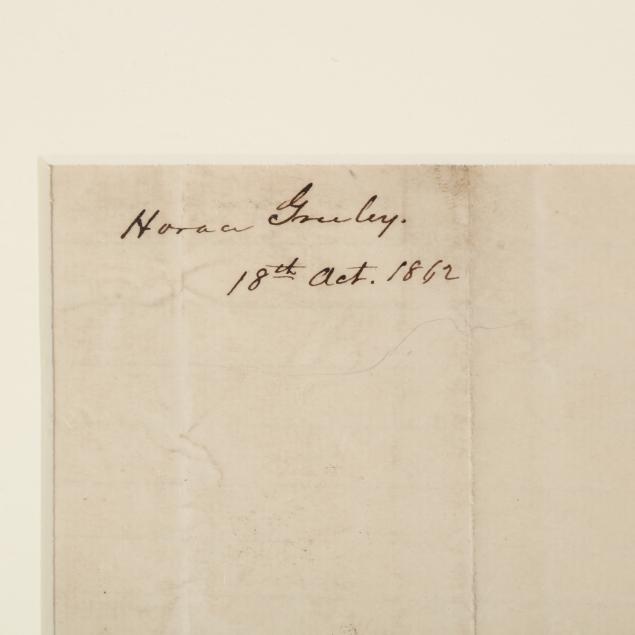 Horace Greeley.
18th Oct. 1862